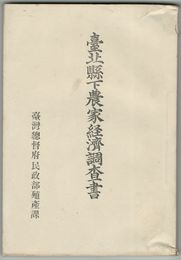 臺北縣下農家經濟調査書
臺灣總督府民政部殖產課